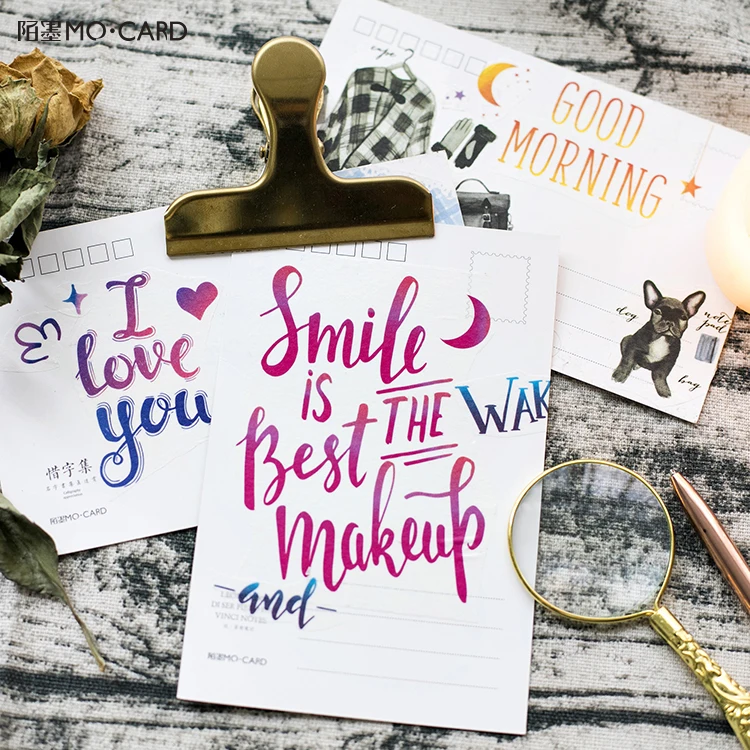 陌墨MO·CARD
cape
GOOD
MORNING
dog
note
pad
bag
I
love
you
惜字集
陌墨MO·CARD
Smile
is
Best THE WAK
Makeup
and
DI SER P
VINCI NOVEL
陌墨MO·CARD